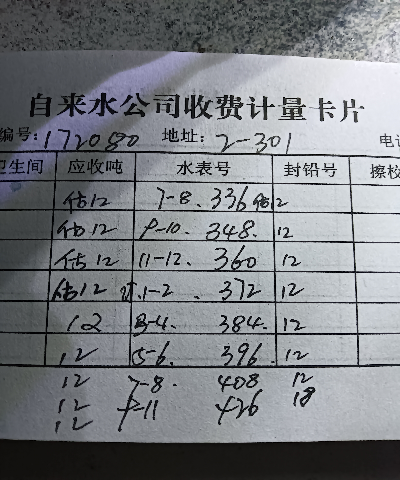 自来水公司收费计量卡片
编号:172080 地址:2-301 电
卫生间 应收吨 水表号 封铅号 擦校
估12 7-8. 336 估12
估12 9-10. 348. 12
估12 11-12. 360 12
估12 1-2. 372 12
12 3-4. 384. 12
12 5-6. 396. 12
12 7-8. 408 12
12 9-11 426 18
12